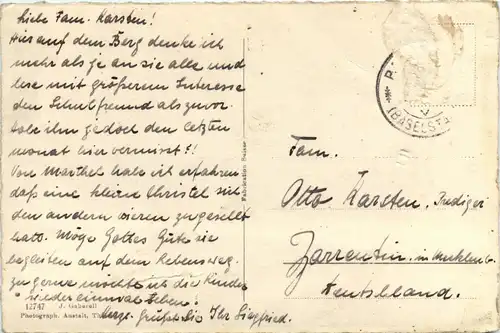 Liebe Fam. Karsten!
Hier auf dem Berg denke ich
mehr als je an sie alle und
lese mit größerem Interesse
den Schulfreund als zuvor.
Habe ihn jedoch den letzten
Monat hier vermisst!!
Von Marthel habe ich erfahren
daß eine kleine Christel sich
den andern vieren zugesellt
hat. Möge Gottes Güte sie
begleiten auf dem Lebensweg.
Zu gerne möchte ich die Kinder
wieder einmal sehen!
grüßt Sie Ihr Siegfried.
12747 J. Gaberell
Photograph. Anstalt, Th
Fabrication Suisse
(BASELSTA
Fam.
Otto Karsten, Prediger
Zarrentin in Mecklenb.
Deutschland.